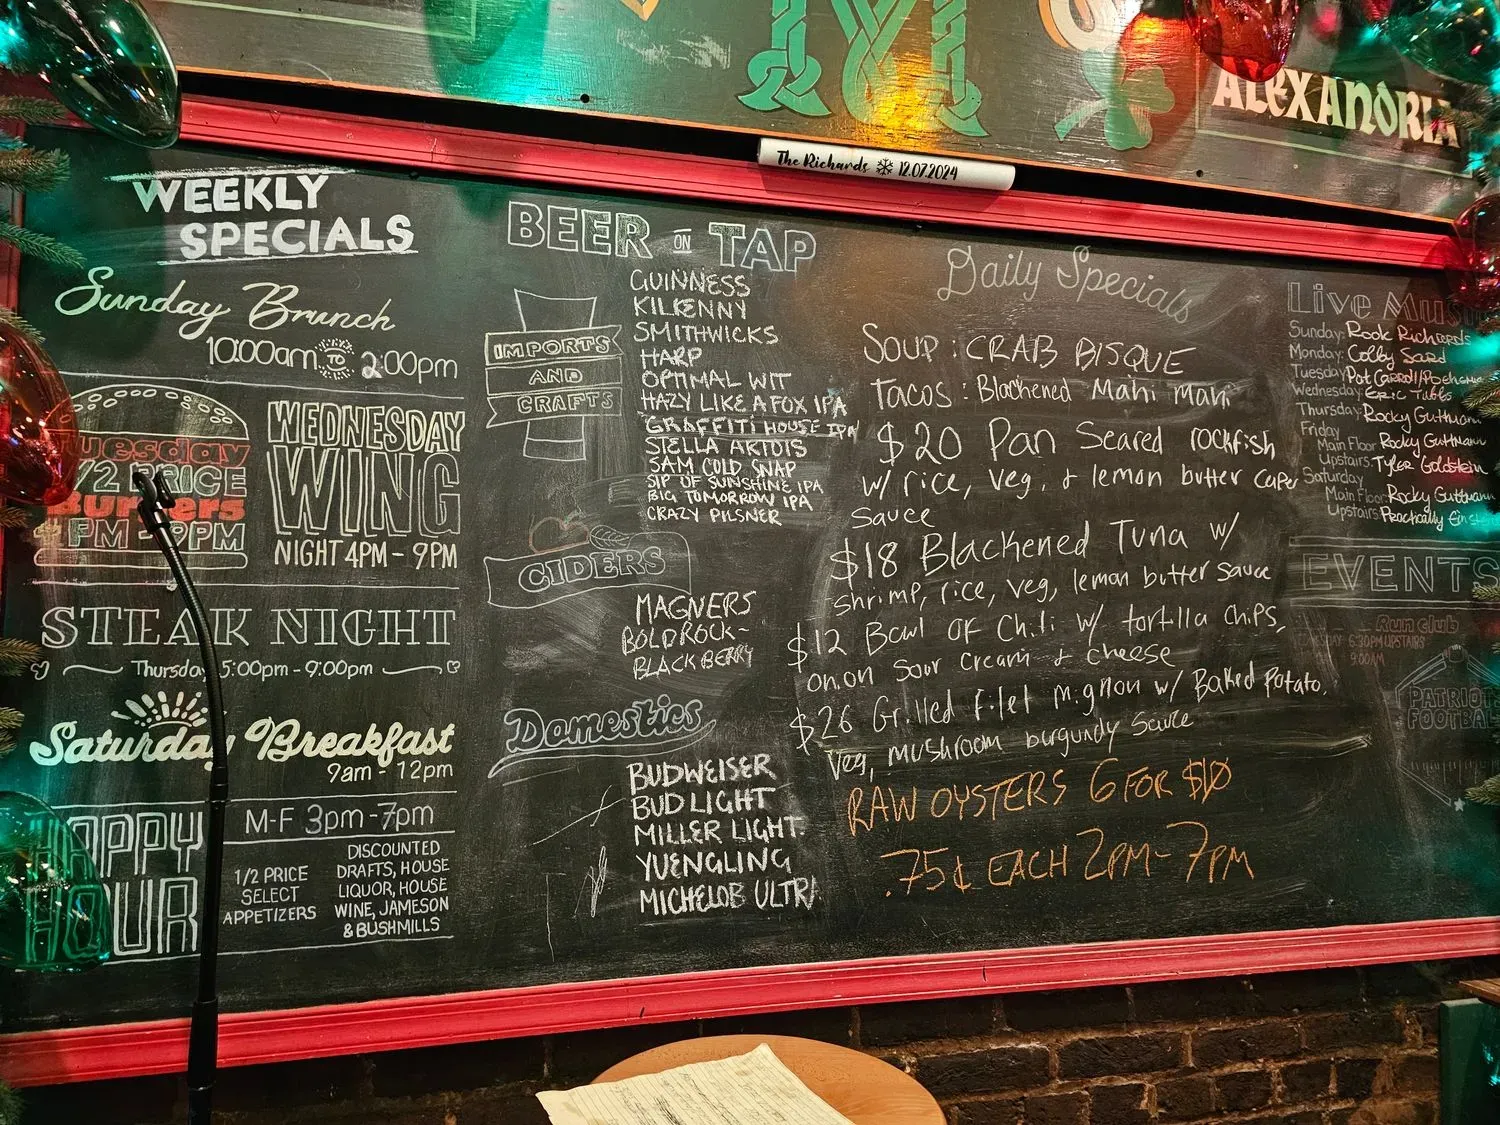 ALEXANDRIA
The Richards ❄ 12.07.2024
WEEKLY
SPECIALS
Sunday Brunch
10:00am TO 2:00pm
Tuesday
1/2 PRICE
Burgers
PM - 9PM
WEDNESDAY
WING
NIGHT 4PM - 9PM
STEAK NIGHT
Thursday 5:00pm - 9:00pm
Saturday Breakfast
9am - 12pm
HAPPY
HOUR
M-F 3pm-7pm
1/2 PRICE
SELECT
APPETIZERS
DISCOUNTED
DRAFTS, HOUSE
LIQUOR, HOUSE
WINE, JAMESON
& BUSHMILLS
BEER ON TAP
IMPORTS
AND
CRAFTS
GUINNESS
KILKENNY
SMITHWICKS
HARP
OPTIMAL WIT
HAZY LIKE A FOX IPA
GRAFFITI HOUSE IPA
STELLA ARTOIS
SAM COLD SNAP
SIP OF SUNSHINE IPA
BIG TOMORROW IPA
CRAZY PILSNER
CIDERS
MAGNERS
BOLD ROCK-
BLACKBERRY
Domestics
BUDWEISER
BUD LIGHT
MILLER LIGHT
YUENGLING
MICHELOB ULTRA
Daily Specials
SOUP: CRAB BISQUE
TACOS: Blackened Mahi Mahi
$20 Pan Seared rockfish
w/ rice, veg, & lemon butter caper
sauce
$18 Blackened Tuna w/
shrimp, rice, veg, lemon butter sauce
$12 Bowl OF Chili w/ tortilla chips,
onion sour cream & cheese
$26 Grilled filet mignon w/ Baked Potato,
Veg, mushroom burgundy sauce
RAW OYSTERS 6 FOR $10
.75¢ EACH 2PM-7PM
Live Mus
Sunday: Rook Richards
Monday: Colby Sard
Tuesday: Pat Carroll/
Wednesday: Eric Tubbs
Thursday: Rocky Guttmann
Friday
Main Floor Rocky Guttmann
Upstairs: Tyler Goldstein
Saturday
Main Floor: Rocky Guttmann
Upstairs: Practically Einst
EVENTS
Run club
6:30PM UPSTAIRS
9:00AM
PATRIOT
FOOTBAL